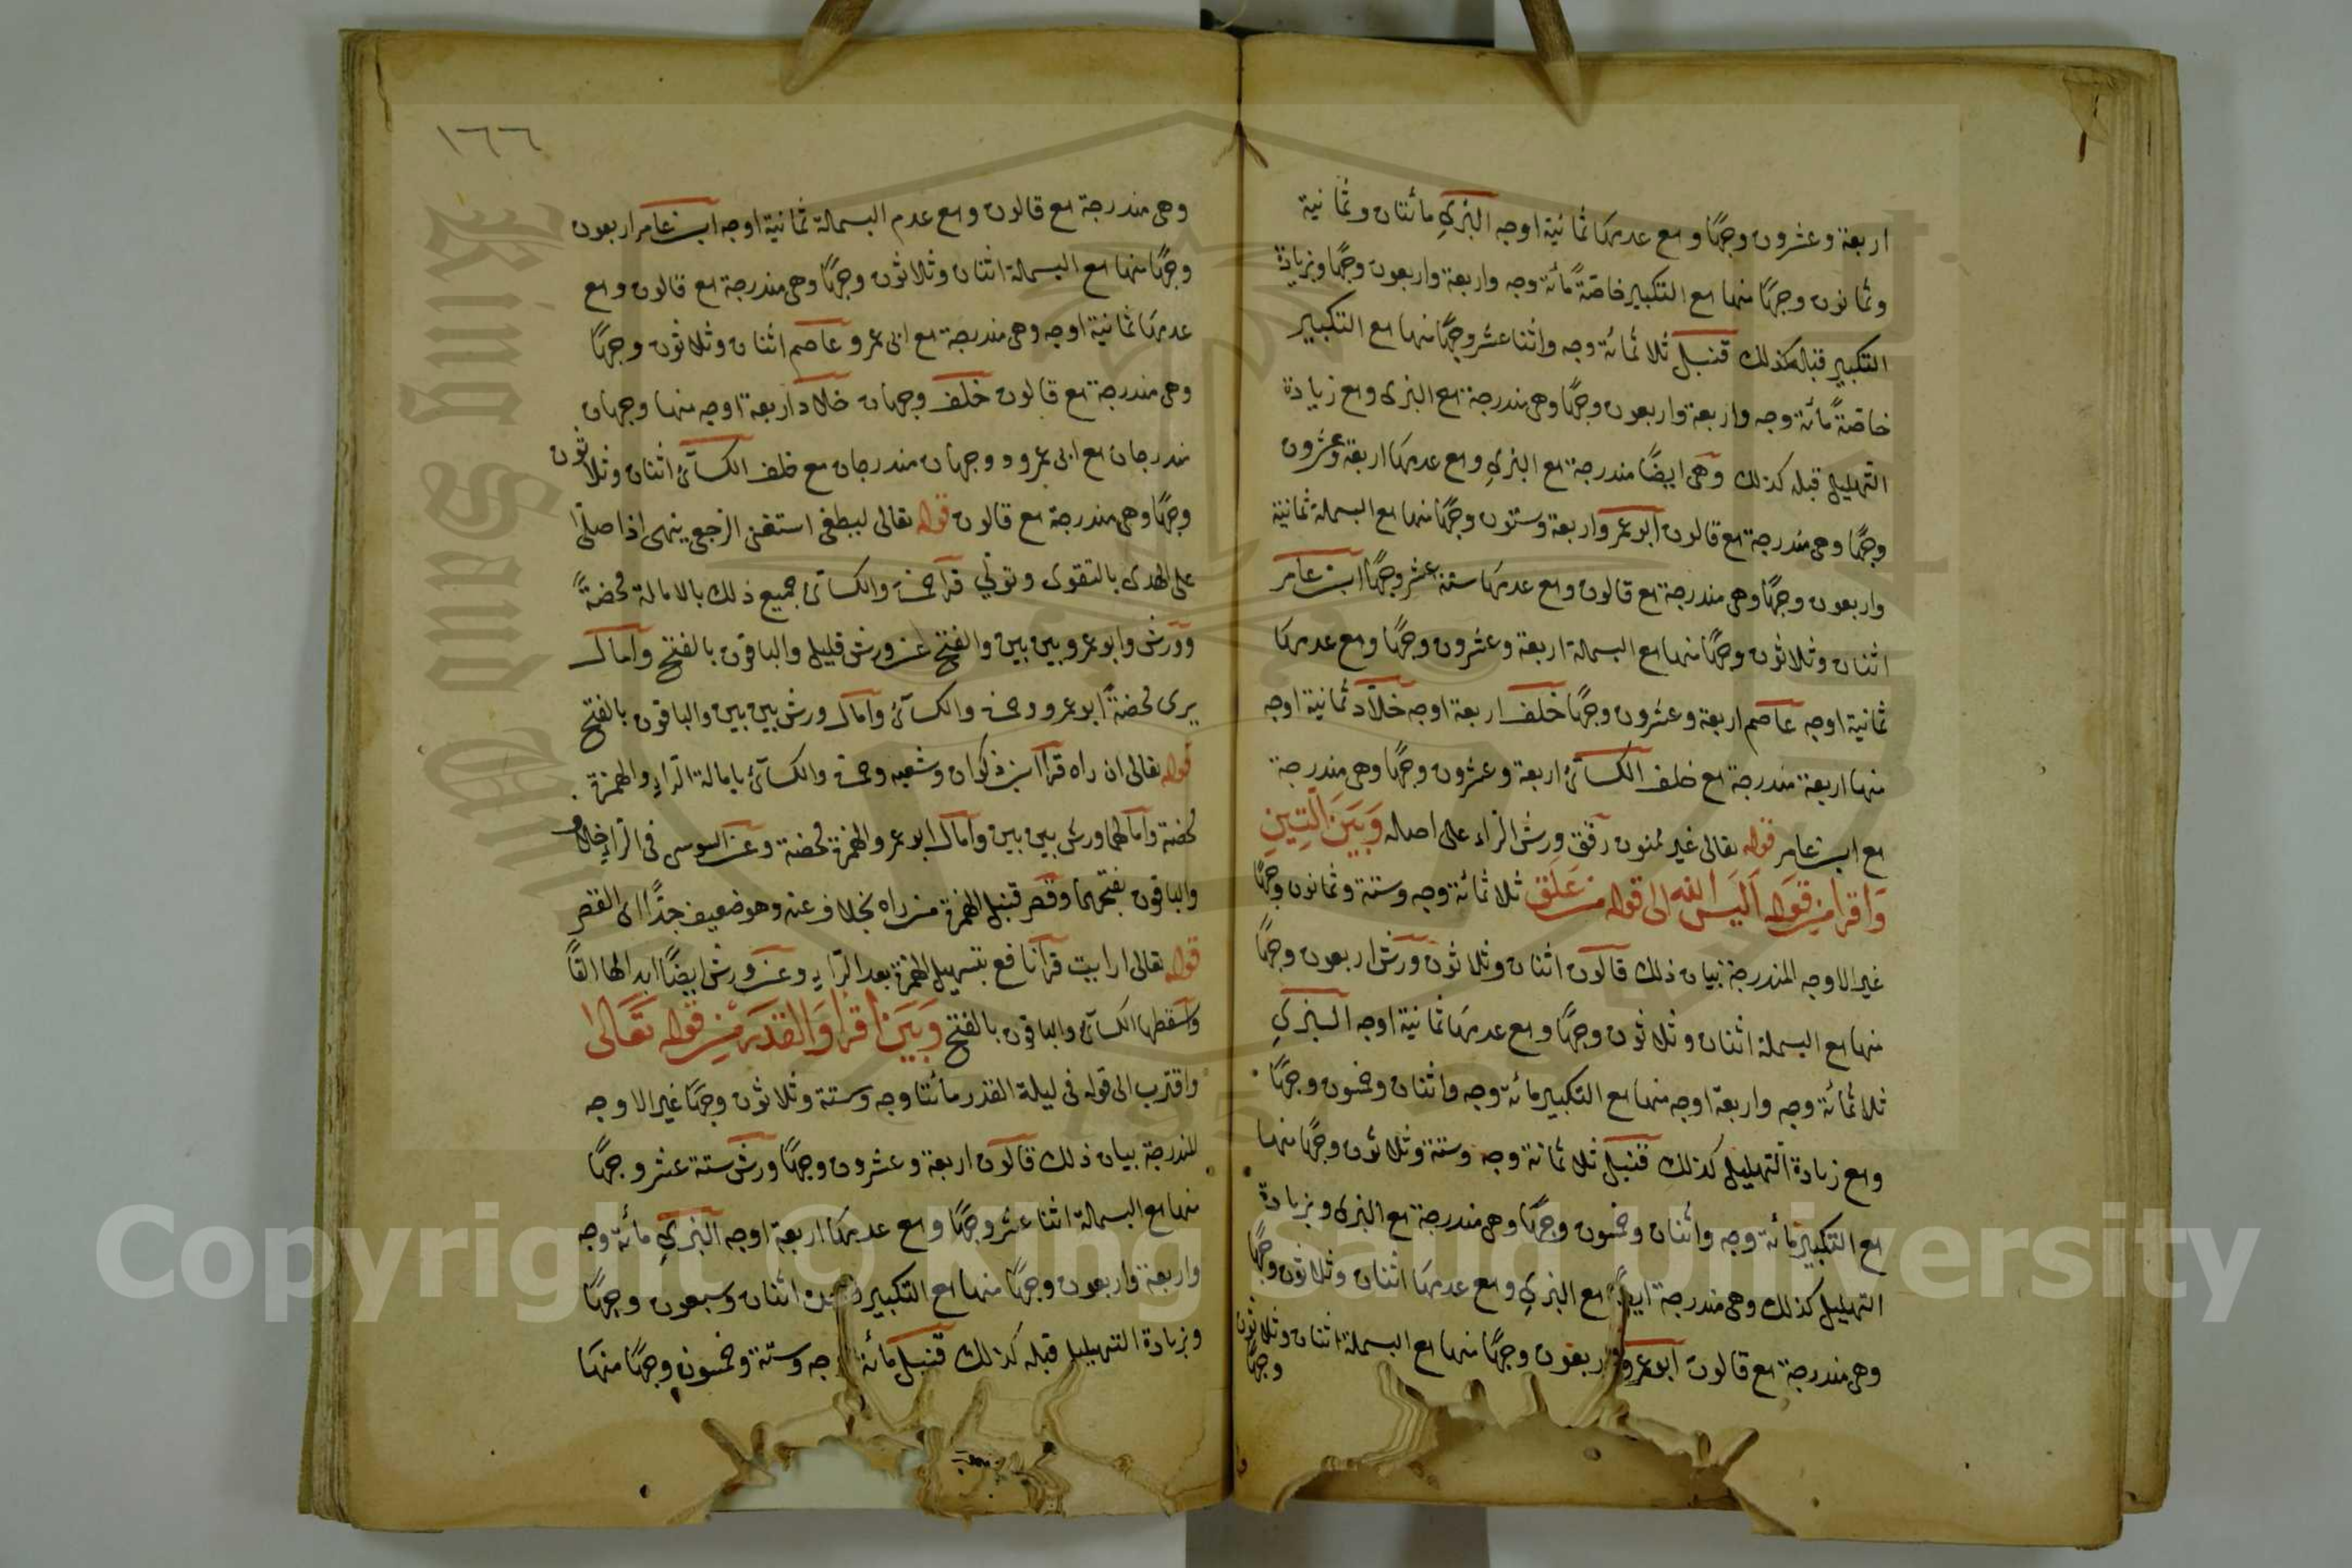 اربعة وعشرون وجهًا ومع عدمها ثمانية اوجه البزي مائتان وثمانية
وثمانون وجهًا منها مع التكبير خاصّةً مائة وجه واربعة واربعون وجهًا وبزيادة
التكبير قبله كذلك قنبل ثلاثمائة وجه واثنا عشر وجهًا منها مع التكبير
خاصّةً مائة وجه واربعة واربعون وجهًا وهى مندرجة مع البزى ومع زيادة
التهليل قبله كذلك وهى ايضًا مندرجة مع البزي ومع عدمها اربعة وعشرون
وجهًا وهى مندرجة مع قالون ابو عمرو اربعة وستون وجهًا منها مع البسملة ثمانية
واربعون وجهًا وهى مندرجة مع قالون ومع عدمها ستة عشر وجهًا ابن عامر
اثنان وثلاثون وجهًا منها مع البسملة اربعة وعشرون وجهًا ومع عدمها
ثمانية اوجه عاصم اربعة وعشرون وجهًا خلف اربعة اوجه خلاّد ثمانية اوجه
منها اربعة مندرجة مع خلف الكسآئ اربعة وعشرون وجهًا وهى مندرجة
مع ابن عامر قوله تعالى غير ممنون رقق ورش الراء على اصله وَبَيَنَ الَتِينِ
وَاقرا مِن قَوله اَلَيسَ الله الى قوله من عَلَق ثلاثمائة وجه وستة وثمانون وجهًا
غير الاوجه المندرجة بيان ذلك قالون اثنان وثلاثون ورش اربعون وجهًا
منها مع البسملة اثنان وثلاثون وجهًا ومع عدمها ثمانية اوجه البزي
ثلاثمائة وجه واربعة اوجه منها مع التكبير مائة وجه واثنان وخمسون وجهًا
ومع زيادة التهليل كذلك قنبل ثلاثمائة وجه وستة وثلاثون وجهًا منها
مع التكبير مائة وجه واثنان وخمسون وجهًا وهى مندرجة مع البزى وبزيادة
التهليل كذلك وهى مندرجة ايضًا مع البزي ومع عدمها اثنان وثلاثون وجهًا
وهى مندرجة مع قالون ابو عمرو اربعون وجهًا منها مع البسملة اثنان وثلاثون
وجهًا
١٦٦
وهى مندرجة مع قالون ومع عدم البسملة ثمانية اوجه ابن عامر اربعون
وجهًا منها مع البسملة اثنان وثلاثون وجهًا وهى مندرجة مع قالون ومع
عدمها ثمانية اوجه وهى مندرجة مع ابى عمرو عاصم اثنان وثلاثون وجهًا
وهى مندرجة مع قالون خلف وجهان خلاد اربعة اوجه منها وجهان
مندرجان مع ابى عمرو ووجهان مندرجان مع خلف الكسآئ اثنان وثلاثون
وجهًا وهى مندرجة مع قالون قوله تعالى ليطغى استغنى الرجعى ينهى اذا صلّى
على الهدى بالتقوى وتولّي قرآ حمزة والكسآئ جميع ذلك بالامالة محضةً
وورش وابو عمرو بين بين والفتح عن ورش قليل والباقون بالفتح وآمال
يرى محضةً ابو عمرو وحمزة والكسآئ وآمال ورش بين بين والباقون بالفتح
قوله تعالى ان راه قرآ ابن ذكوان وشعبه وحمزة والكسآئ بامالة الرّاء والهمزة
محضة وآمالهما ورش بين بين وآمال ابو عمرو الهمزة محضة وعن السوسى فى الرّاء خلاف
والباقون بفتحهما وقصر قنبل الهمزة من راه بخلاف عنه وهو ضعيف جدًّا اى القصر
قوله تعالى ارايت قرآ نافع بتسهيل الهمزة بعد الرّاء وعن ورش ايضًا ابدالها الفًا
واسقطها الكسآئ والباقون بالفتح وَبَيَنَ اقرَا وَالقدَر مِن قوله تَعَالى
واقترب الى قوله فى ليلة القدر مائتا وجه وستة وثلاثون وجهًا غير الاوجه
المندرجة بيان ذلك قالون اربعة وعشرون وجهًا ورش ستة عشر وجهًا
منها مع البسملة اثنا عشر وجهًا ومع عدمها اربعة اوجه البزي مائة وجه
واربعة واربعون وجهًا منها مع التكبير اثنان وسبعون وجهًا
وبزيادة التهليل قبله كذلك قنبل مائة وجه وستة وخمسون وجهًا منها
King Saud University
Copyright © King Saud University
1957